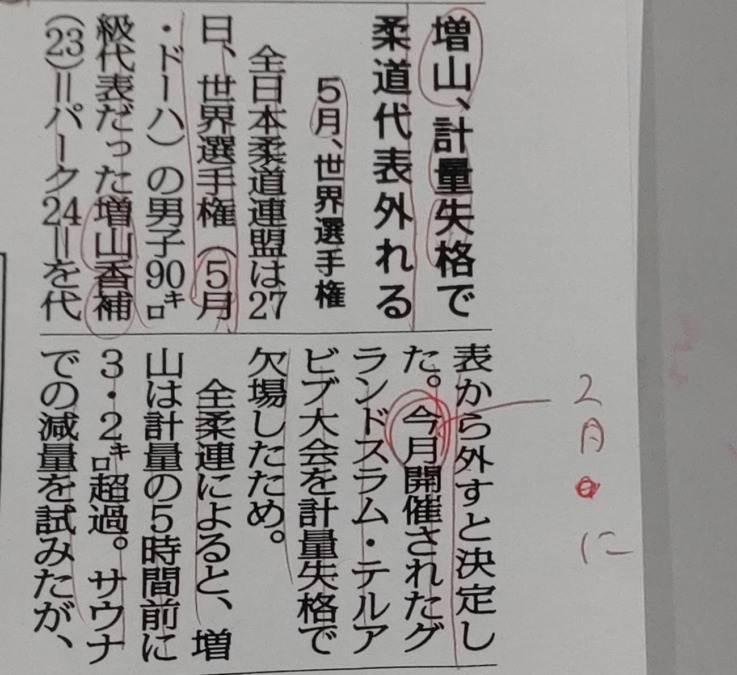 増山、計量失格で
柔道代表外れる
5月、世界選手権
全日本柔道連盟は27
日、世界選手権(5月
・ドーハ)の男子90㌔
級代表だった増山香補
(23)=パーク24=を代
表から外すと決定し
た。今月開催されたグ
ランドスラム・テルア
ビブ大会を計量失格で
欠場したため。
全柔連によると、増
山は計量の5時間前に
3・2㌔超過。サウナ
での減量を試みたが、
2月に